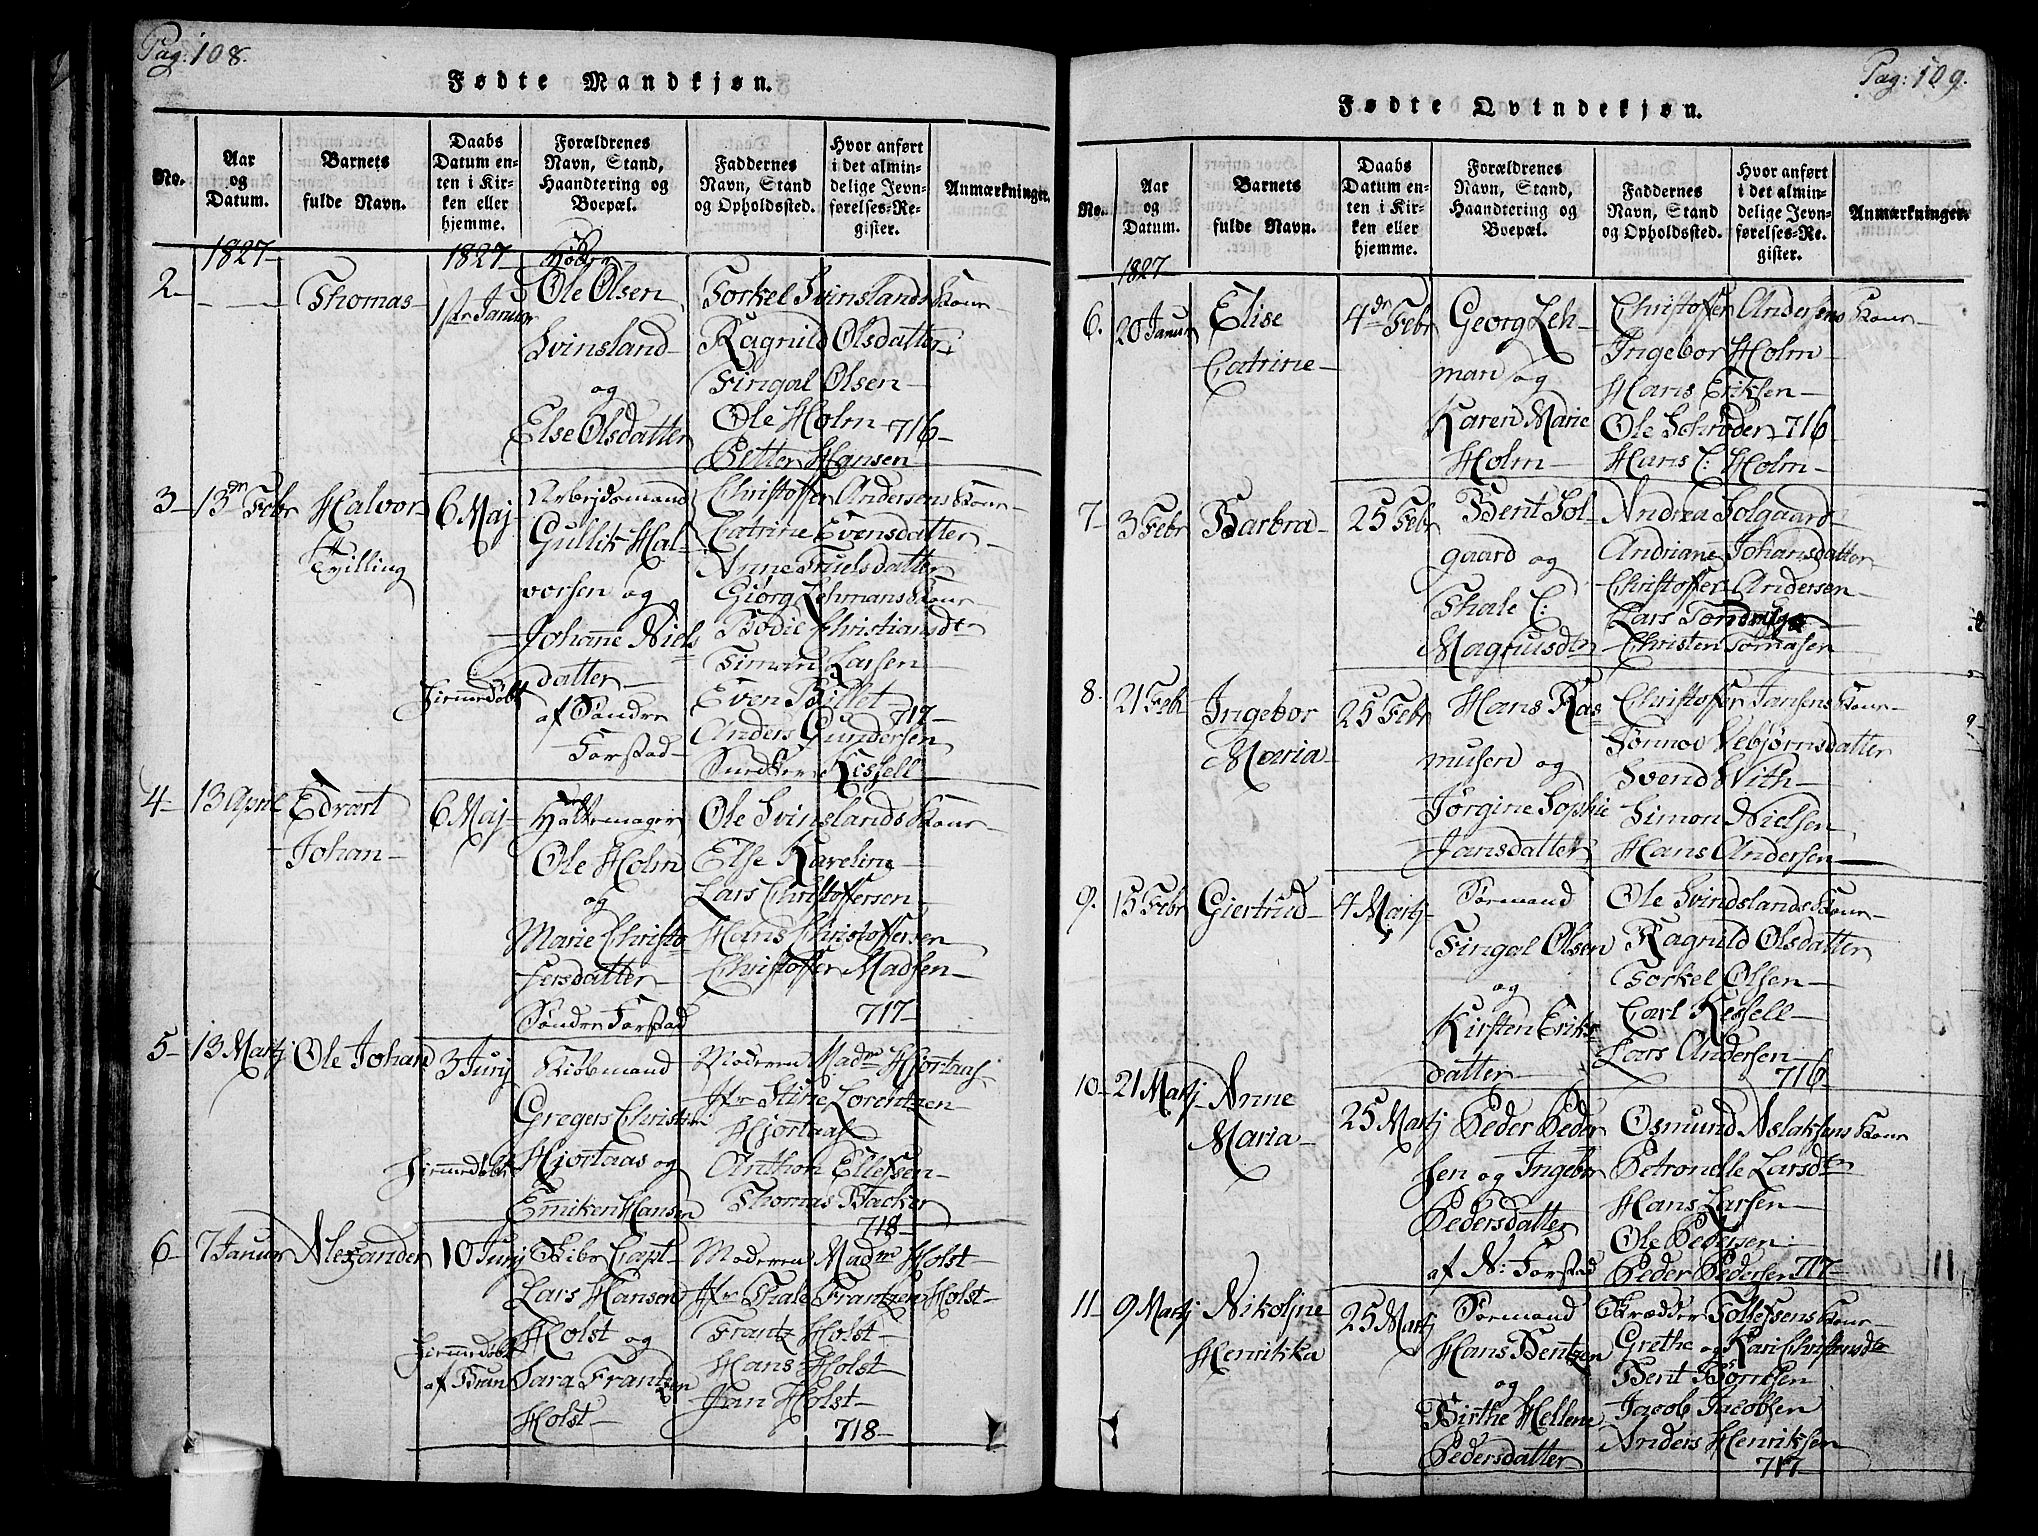 Pag: 108.
Fødte Mandkjøn.
No.
Aar
og
Datum.
Barnets
fulde Navn.
Daabs
Datum en-
ten i Kir-
ken eller
hjemme.
Forældrenes
Navn, Stand,
Haandtering og
Boepæl.
Faddernes
Navn, Stand
og Opholdssted.
Hvor anført
i det almin-
delige Jevn-
førelses-Re-
gister.
Anmærkninger.
1827
1827
2
Thomas
1ste Januar
Ole Olsen
Svinsland
og
Else Olsdatter
Torkel Svinslands Kone
Ragnild Olsdatter
Fingal Olsen
Ole Holm 716
Petter Hansen
3
13de Febr
Halvor
Tvilling
6 Maj
Hiemmedøbt
Arbejdsmand
Gullik Hal-
vorsen og
Johanne Niels
datter
af Søndre
Forstad
Christoffer Andersens Kone
Catrine Evensdatter
Anne Truelsdatter
Giørg Lehmans Kone
Bodil Christiansdtr
Siman Larsen
Even Billet
717
Anders Gundersen
Kessell
4
13 April
Edvart
Johan
6 Maj
Hattemager
Ole Holm
og
Marie Christo
fersdatter
Søndre Forstad
Ole Svinslands Kone
Else Karelin
Lars Christoffersen
Hans Christoffersen
Christoffer Madsen
717
5
13 Martj
Ole Johan
3 Junj
Hiemmedøbt
Kiøbmand
Gregers Christ
Hjortaas og
Emiken Hansen
Moderen Madme Hjortaas
Jfr Stine Lorentzen
Hjortaas
Anthon Ellefsen
Thomas Backer
718
6
7 Januar
Alexander
10 Junj
Hiemmedøbt
Skibs Capt
Lars Hansen
Holst og
Sara Frantzen
Holst
Moderen Madme Holst
Jfr Thale Frantzen Holst
Frantz Holst
Hans Holst
Jan Holst
718
Pag: 109.
Fødte Qvindekjøn.
No.
Aar
og
Datum.
Barnets
fulde Navn.
Daabs
Datum en-
ten i Kir-
ken eller
hjemme.
Forældrenes
Navn, Stand,
Haandtering og
Boepæl.
Faddernes
Navn, Stand
og Opholdssted.
Hvor anført
i det almin-
delige Jevn-
førelses-Re-
gister.
Anmærkninger.
1827
6.
20 Januar
Elise
Catrine
4de Febr
Georg Leh-
man og
Karen Marie
Holm
Christoffer Andersens Kone
Ingebor Holm
Hans Eriksen
Ole Schrøder 716
Hans C: Holm
7
3 Febr
Barbra
25 Febr
Bent Sol-
gaard og
Thale C:
Magnusdtr
Andrea Solgaard
Andriane Johansdatter
Christoffer Andersen
Christen Tomasen
8.
21 Febr
Ingebor
Maria
25 Febr
Hans Ras-
musen og
Jørgine Sophie
Jansdatter
Christoffer Jansens Kone
Tønnov Vebjørnsdatter
Svend With
Simon Nielsen
Hans Andersen
9.
15 Febr
Giertrud
4 Martj
Sørmand
Fingal Olsen
og
Kirsten Eriks
datter
Ole Svindslands Kone
Ragnild Olsdatter
Torkel Olsen
Carl Kessell
Lars Andersen
716
10
21 Martj
Anne
Maria
25 Martj
Peder Peder
sen og Ingebor
Pedersdatter
af N: Forstad
Osmund Aslaksens Kone
Petronelle Larsdtr
Hans Larsen
Ole Pedersen
Peder Pedersen 717
11
11
9 Martj
Nikoline
Henrikka
25 Martj
Sørmand
Hans Bentzen
og
Birthe Hellene
Pedersdatter
Skrædder Tollefsens Kone
Grethe og Kari Christensdtr
Bent Børresen
Jacob Jacobsen
Anders Henriksen
717